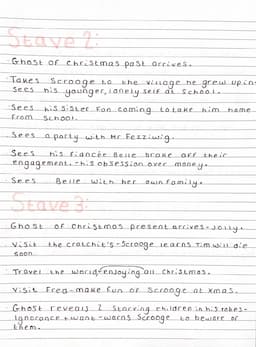 Stave 2:
Ghost of christmas past arrives.
Takes Scrooge to the village he grew up in-
sees his younger, lonely self at school.
Sees his sister Fan coming to take him home
from school.
Sees a party with Mr Fezziwig.
Sees his fiancée Belle brake off their
engagement. - his obsession over money.
Sees Belle with her own family.
Stave 3:
Ghost of christmas present arrives - Jolly.
Visit the cratchit's - Scrooge learns Tim will die
soon.
Travel the world, enjoying all christmas.
Visit Fred - make fun of Scrooge at xmas.
Ghost reveals 2 starving children in his robes -
Ignorance + want - warns Scrooge to beware of
them.